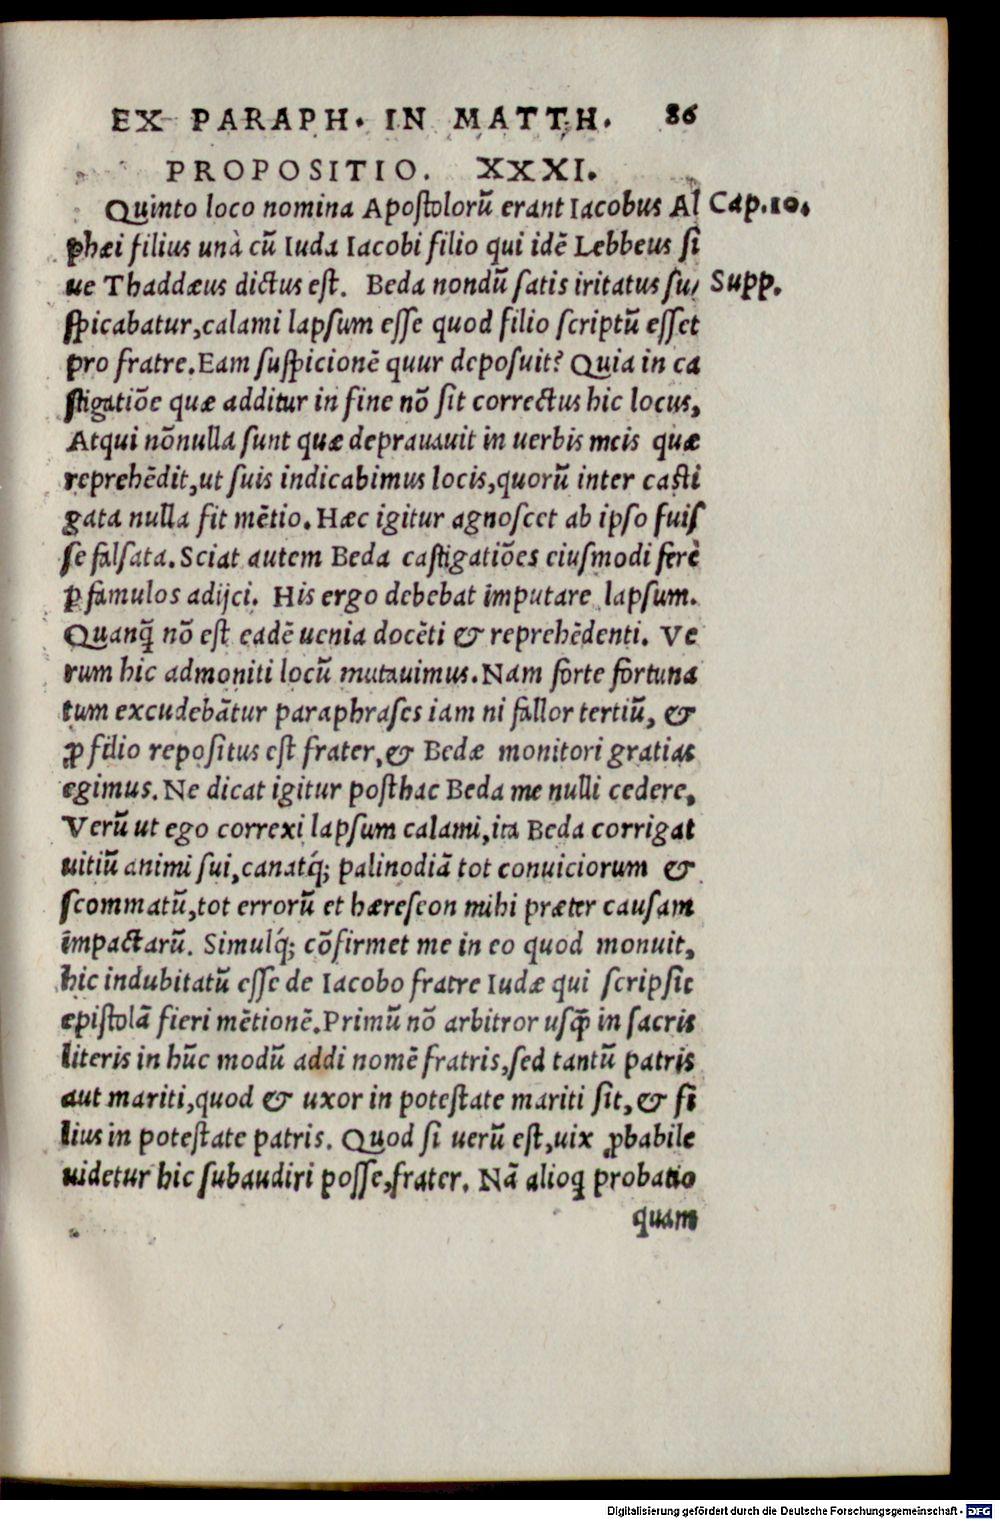 EX PARAPH. IN MATTH. 86
PROPOSITIO. XXXI.
Quinto loco nomina Apostolorū erant Iacobus Al Cap.10.
phæi filius unà cū Iuda Iacobi filio qui idē Lebbeus si
ue Thaddæus dictus est. Beda nondū satis iritatus su, Supp.
spicabatur,calami lapsum esse quod filio scriptū esset
pro fratre.Eam suspicionē quur deposuit? Quia in ca
stigatiōe quæ additur in fine nō sit correctus hic locus,
Atqui nōnulla sunt quæ deprauauit in uerbis meis quæ
reprehēdit,ut suis indicabimus locis,quorū inter casti
gata nulla fit mētio.Hæc igitur agnoscet ab ipso fuis
se falsata.Sciat autem Beda castigatiōes eiusmodi ferè
ꝑ famulos adijci. His ergo debebat imputare lapsum.
Quanq̄ nō est eadē uenia docēti & reprehēdenti. Ve
rum hic admoniti locū mutauimus.Nam forte fortuna
tum excudebātur paraphrases iam ni fallor tertiū, &
ꝓ filio repositus est frater,& Bedæ monitori gratias
egimus.Ne dicat igitur posthac Beda me nulli cedere,
Verū ut ego correxi lapsum calami,ita Beda corrigat
uitiū animi sui,canatq́; palinodiā tot conuiciorum &
scommatū,tot errorū et hæreseon mihi præter causam
impactarū. Simulq́; cōfirmet me in eo quod monuit,
hic indubitatū esse de Iacobo fratre Iudæ qui scripsit
epistolā fieri mētionē.Primū nō arbitror usq̄ in sacris
literis in hūc modū addi nomē fratris,sed tantū patris
aut mariti,quod & uxor in potestate mariti sit,& fi
lius in potestate patris. Quod si uerū est,uix ꝓbabile
uidetur hic subaudiri posse,frater. Nā alioq̄ probatio
quam
Digitalisierung gefördert durch die Deutsche Forschungsgemeinschaft - DFG